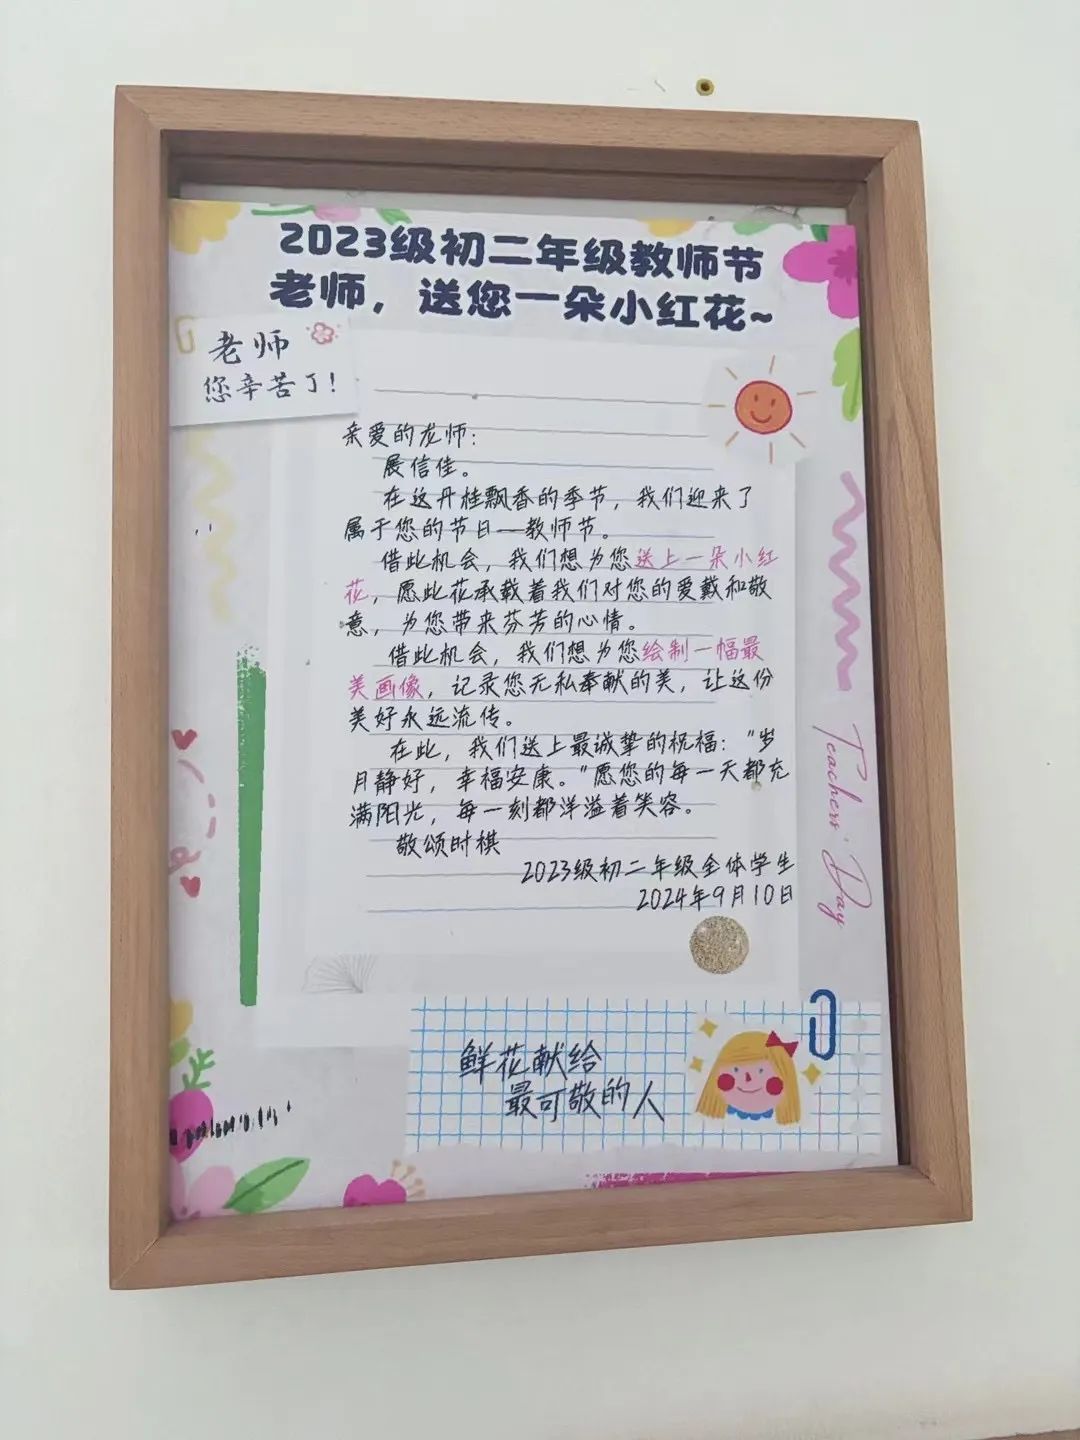 2023级初二年级教师节
老师，送您一朵小红花~
老师
您辛苦了!
亲爱的老师：
展信佳。
在这丹桂飘香的季节，我们迎来了
属于您的节日—教师节。
借此机会，我们想为您送上一朵小红
花，愿此花承载着我们对您的爱戴和敬
意，为您带来芬芳的心情。
借此机会，我们想为您绘制一幅最
美画像，记录您无私奉献的美，让这份
美好永远流传。
在此，我们送上最诚挚的祝福："岁
月静好，幸福安康。"愿您的每一天都充
满阳光，每一刻都洋溢着笑容。
敬颂时棋
2023级初二年级全体学生
2024年9月10日
Teachers' Day
鲜花献给
最可敬的人